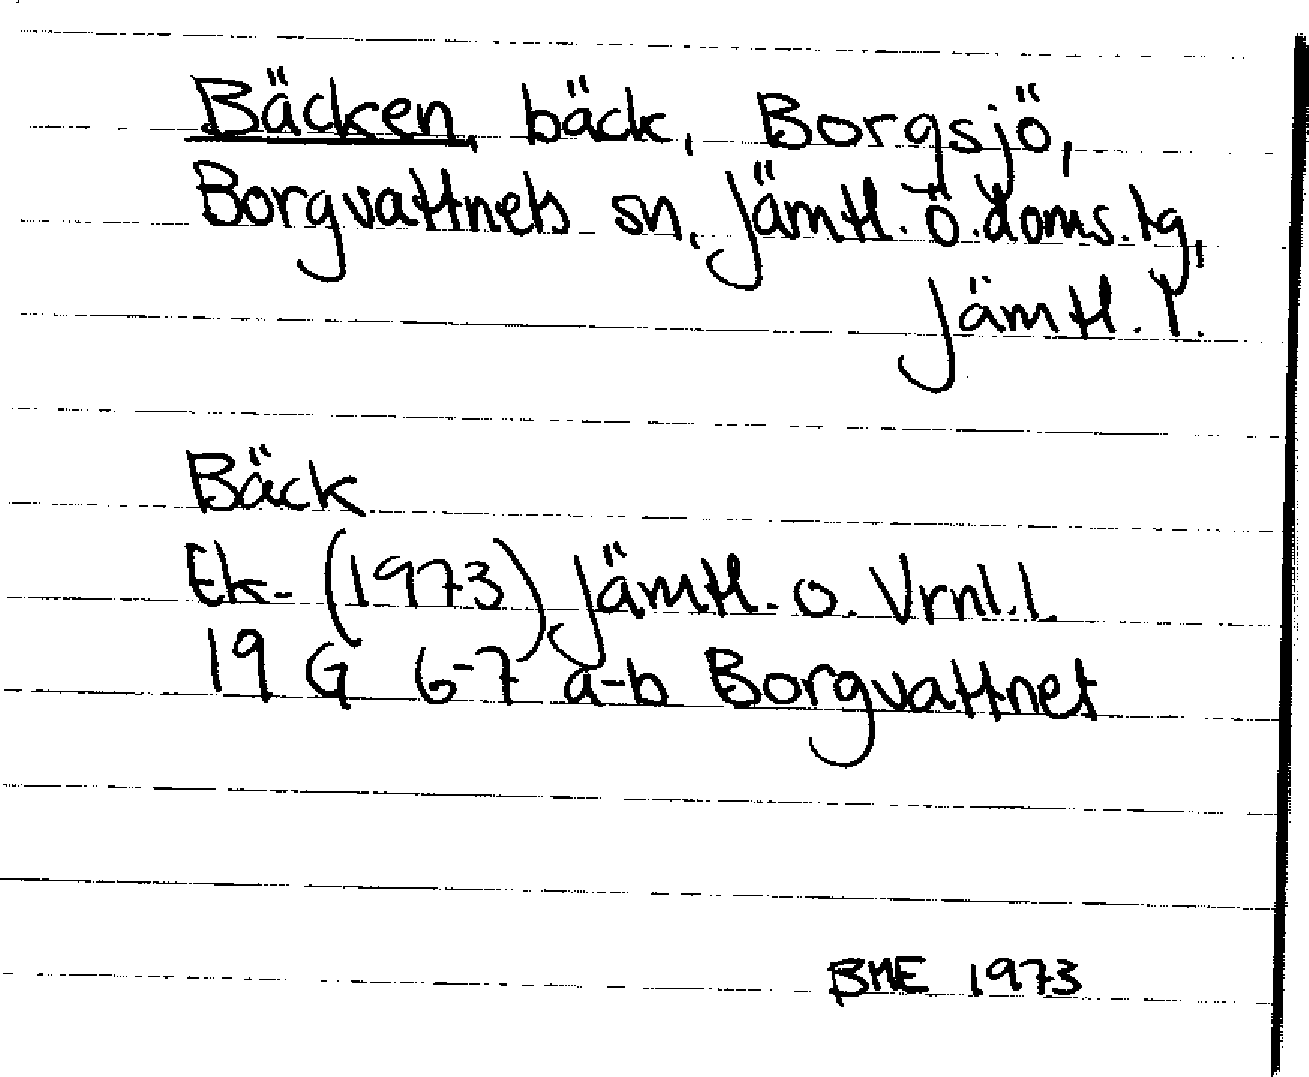 Bäcken, bäck, Borgsjö,
Borgvattnets sn, Jämtl. ö. doms. tg,
Jämtl. l.
Bäck
Ek. (1973) Jämtl. o. Vrnl. l.
19 G 6-7 a-b Borgvattnet
BME 1973